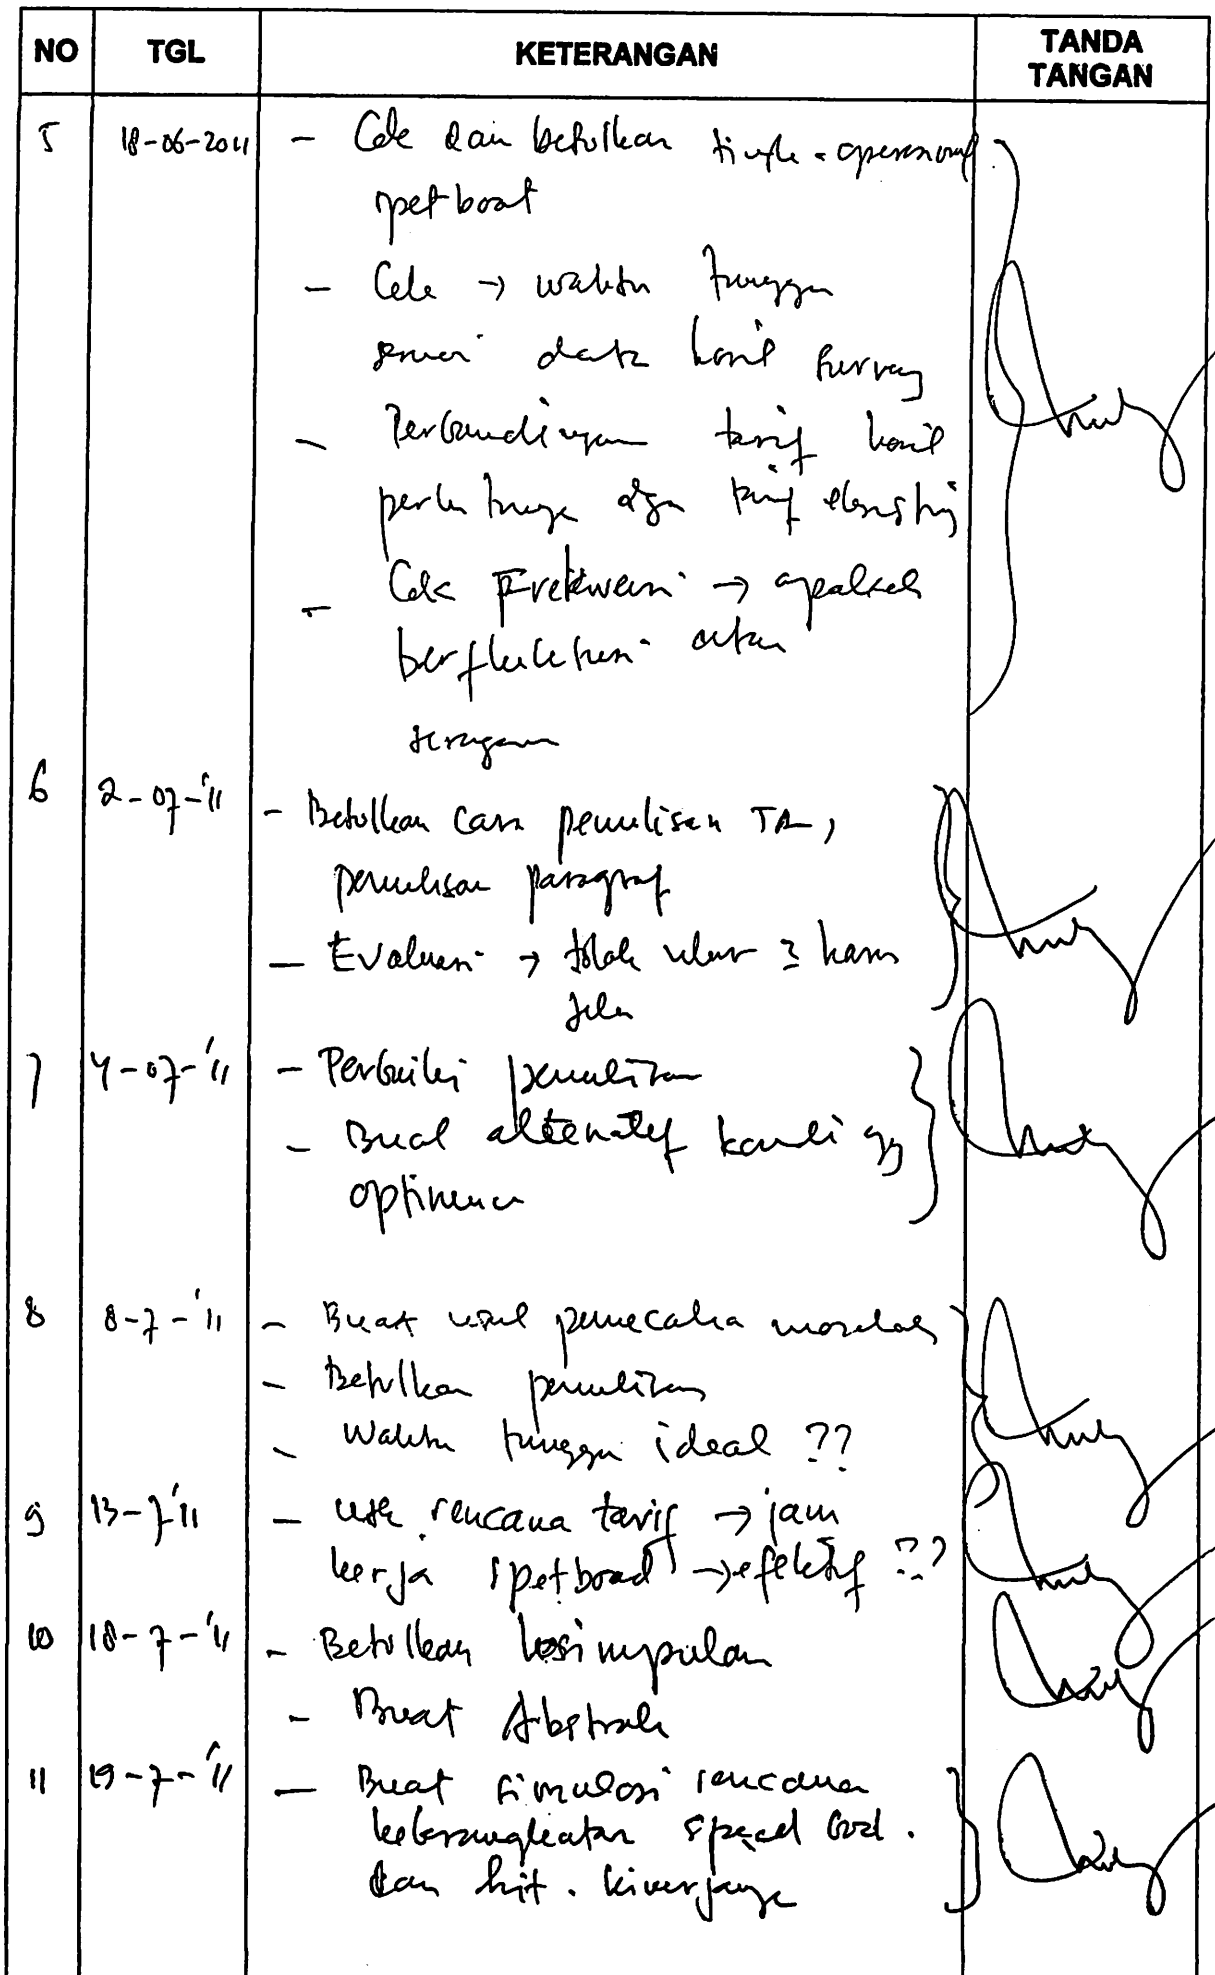 NO TGL KETERANGAN TANDA TANGAN
5 18-06-2011 - Cek dan betulkan operasional
spetboat
- Cek → waktu tunggu
sesuai data hasil survey
- Perbandingan tarif hasil
dgn tarif
- Cek Frekwensi → apakah
berfluktuasi atau
seragam
6 2-07-'11 - Betulkan cara penulisan TA,
penulisan paragraf
- Evaluasi → tolak ukur harus
jelas
7 4-07-'11 - Perbaiki penulisan
- Buat alternatif kondisi yg
optimum
8 8-7-'11 - Buat usul pemecaha masalah
- Betulkan penulisan
- Waktu tunggu ideal ??
9 13-7'11 - utk rencana tarif → jam
kerja spetboad → efektif ??
10 18-7-'11 - Betulkan kesimpulan
- Buat Abstrak
11 19-7-'11 - Buat simulasi rencana
keberangkatan speed
dan hit. kinerjanya